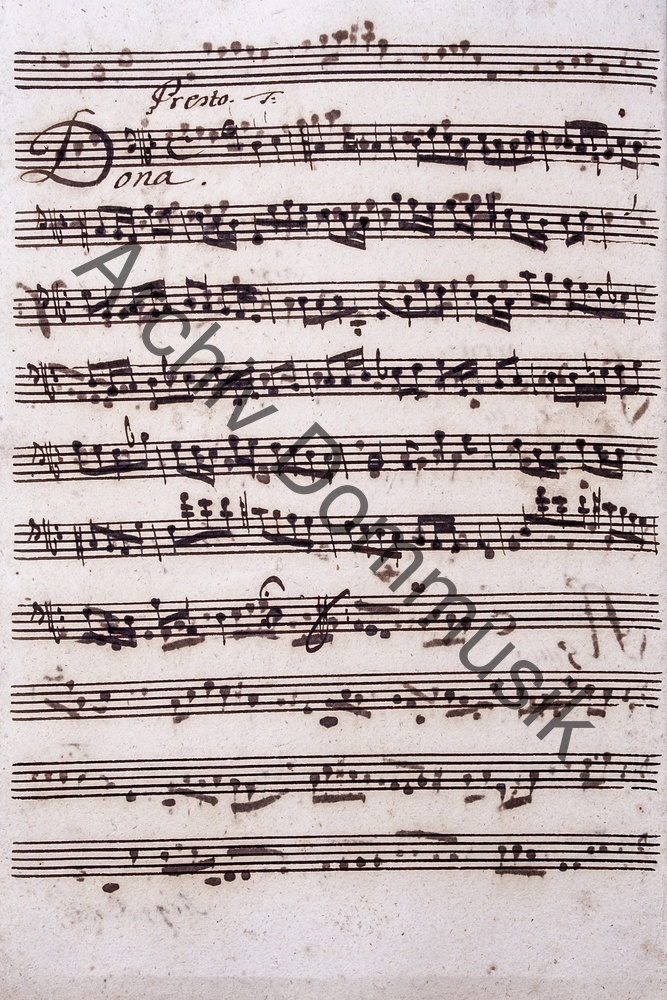 Presto.
Dona.
Archiv Dommusik